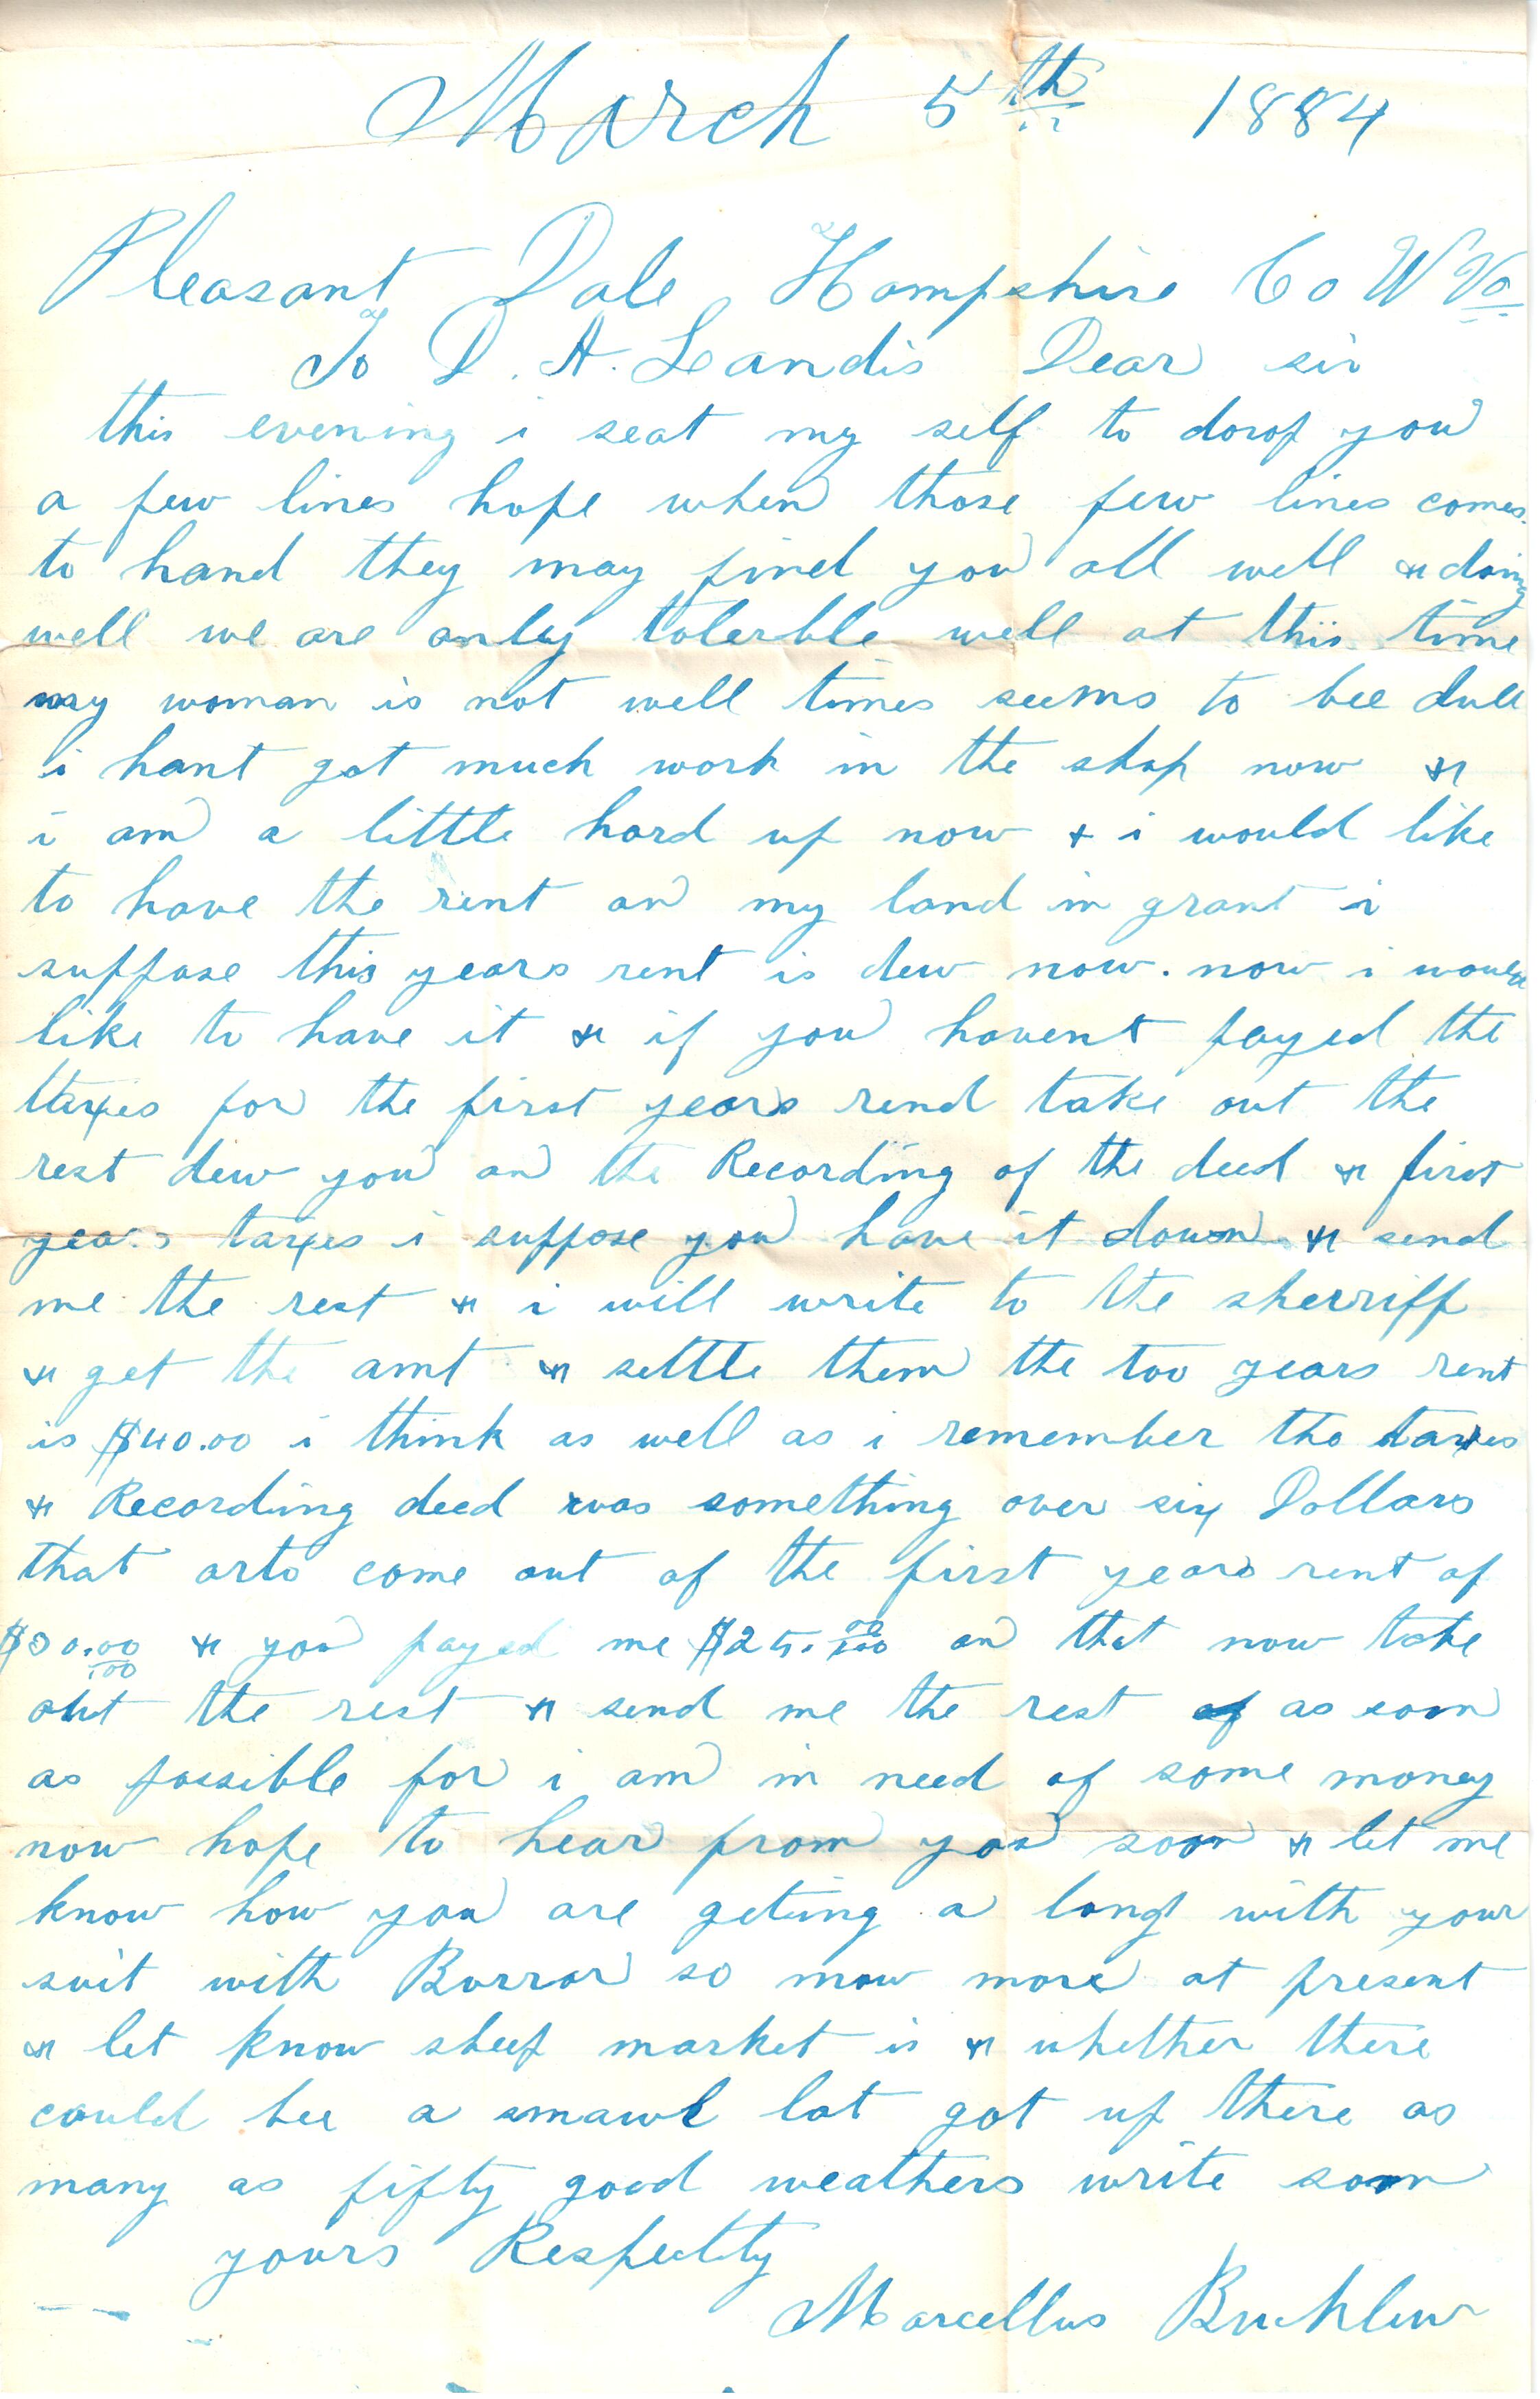 March 5th 1884
Pleasant Dale Hampshire Co W Va
To D. A. Landis Dear sir
this evening i seat my self to dorop you
a few lines hope when those few lines comes
to hand they may find you all well & doing
well we are only tolerble well at this time
my woman is not well times seems to bee dull
i hant got much work in the shop now &
i am a little hard up now & i would like
to have the rent on my land in grant i
suppose this years rent is dew now. now i would
like to have it & if you havent payed the
taxes for the first years rend take out the
rest dew you on the Recording of the deed & first
years taxes i suppose you have it down & send
me the rest & i will write to the sherriff
& get the amt & settle them the too years rent
is $40.00 i think as well as i remember the taxes
& Recording deed was something over six Dollars
that orto come out of the first years rent of
& you payed me $25.00/100 on that now take
out the rest & send me the rest as soon
as possible for i am in need of some money
now hope to hear from you soon & let me
know how you are geting a long with your
suit with so now more at present
& let know sheep market is & whether there
could bee a smawl lot got up there as
many as fifty good weathers write soon
yours Respectity
Marcellus